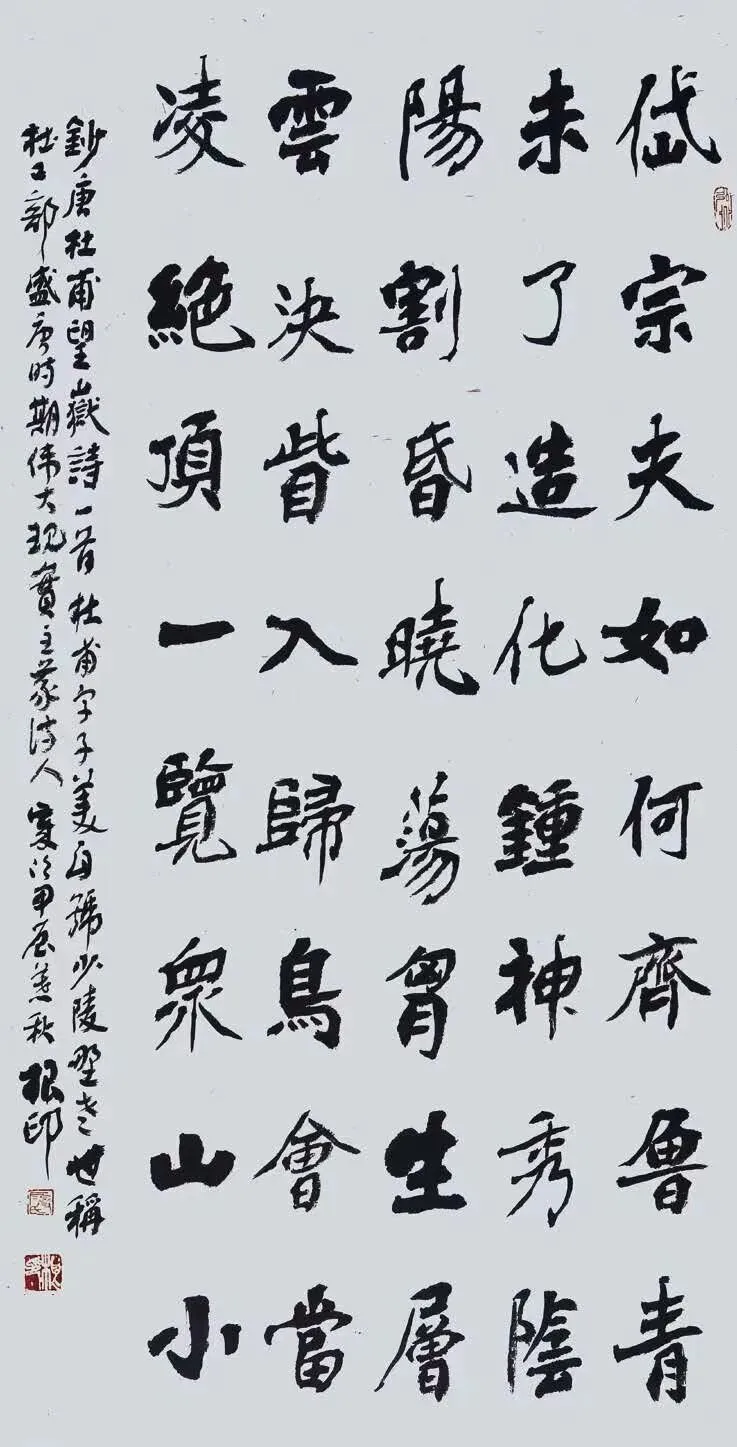 岱宗夫如何齊魯青
未了造化鍾神秀陰
陽割昏曉蕩胷生層
雲決眥入歸鳥會當
凌絕頂一覽衆山小
鈔唐杜甫望嶽詩一首杜甫字子美自號少陵野老世稱
杜工部盛唐時期伟大現實主義诗人寫於甲辰之秋根印